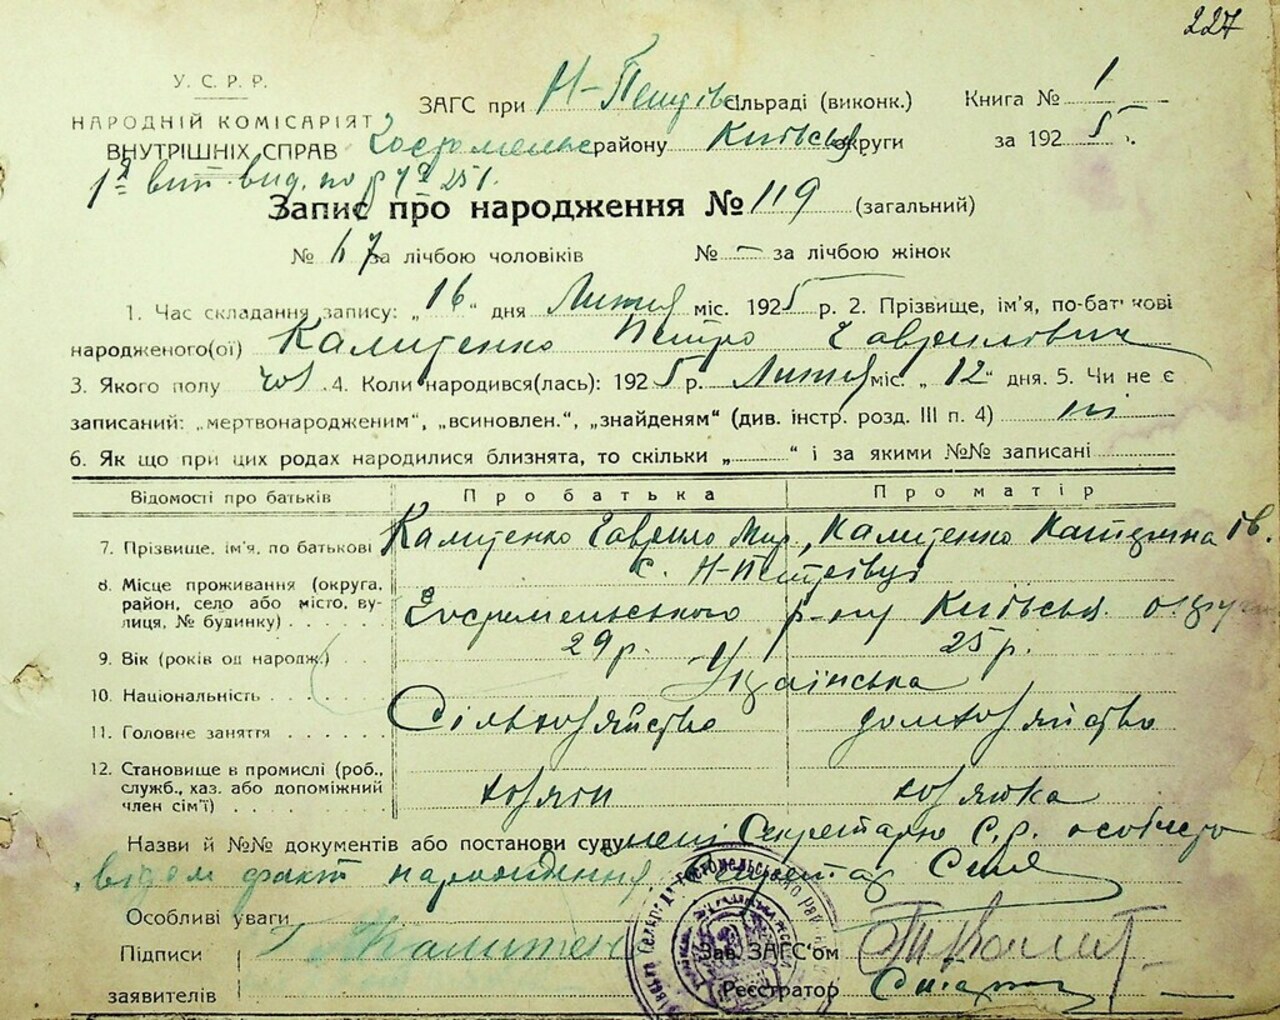 227
У. С. Р. Р.
НАРОДНІЙ КОМІСАРІЯТ
ВНУТРІШНІХ СПРАВ
ЗАГС при Н-Петрівс сільраді (виконк.) Книга № 1
Гостомельс району Київськ округи за 1925 р.
Запис про народження № 119 (загальний)
№ 67 за лічбою чоловіків № – за лічбою жінок
1. Час складання запису: „16“ дня Лютня міс. 1925 р. 2. Прізвище, ім'я, по-батькові
народженого(ої) Калитенко Петро Гаврилович
3. Якого полу чол. 4. Коли народився(лась): 1925 р. Лютня міс. „12“ дня. 5. Чи не є
записаний: „мертвонародженим“, „всиновлен.“, „знайденям“ (див. інстр. розд. III п. 4) ні
6. Як що при цих родах народилися близнята, то скільки „ “ і за якими №№ записані
Відомості про батьків Про батька Про матір
7. Прізвище, ім'я, по батькові Калитенко Гаврило Мир, Калитенко Катерина Ів.
8. Місце проживання (округа, район, село або місто, вулиця, № будинку) с. Н-Петрівці
Гостомельського р-ну Київськ. округи
9. Вік (років од народж.) 29 р. 25 р.
10. Національність Українська
11. Головне заняття Сільхозяйство домхозяйство
12. Становище в промислі (роб., служб., хаз. або допоміжний член сім'ї) хозяїн хозяюка
Назви й №№ документів або постанови суду мені Секретарю С.Р. особисто
відом факт народження. Секретар
Особливі уваги
Підписи Калитен Зав. ЗАГС'ом
заявителів Реєстратор